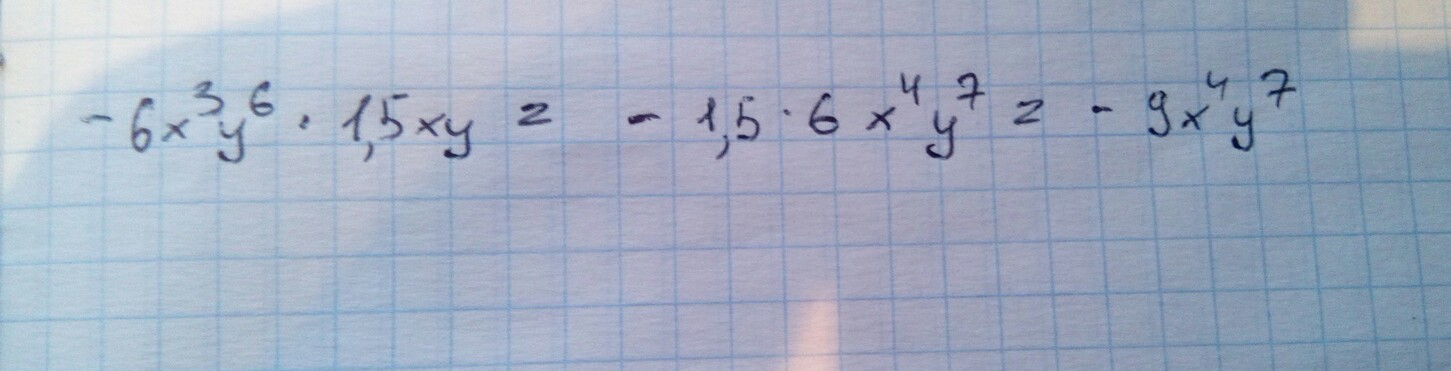 -6x³y⁶ · 1,5xy = - 1,5 · 6 x⁴y⁷ = - 9x⁴y⁷